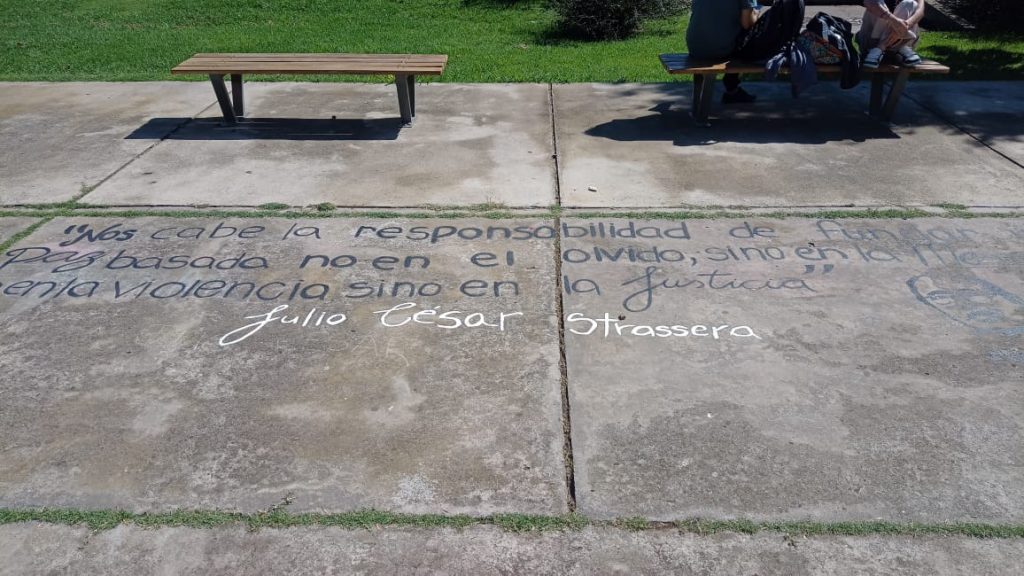 "Nos cabe la responsabilidad de fundar
Paz basada no en el olvido, sino en la
en la violencia sino en la Justicia"
Julio César Strassera